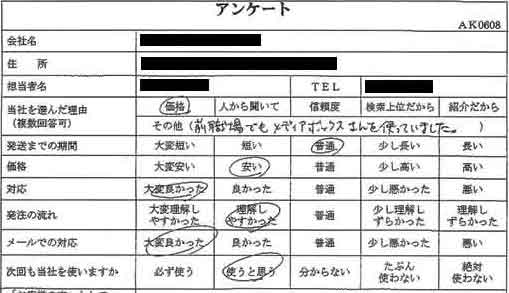 アンケート
AK0608
会社名
住 所
担当者名 TEL
当社を選んだ理由 (複数回答可) 価格 人から聞いて 信頼度 検索上位だから 紹介だから
その他(前職場でもメディアボックスさんを使っていました。)
発送までの期間 大変短い 短い 普通 少し長い 長い
価格 大変安い 安い 普通 少し高い 高い
対応 大変良かった 良かった 普通 少し悪かった 悪い
発注の流れ 大変理解しやすかった 理解しやすかった 普通 少し理解しずらかった 理解しずらかった
メールでの対応 大変良かった 良かった 普通 少し悪かった 悪い
次回も当社を使いますか 必ず使う 使うと思う 分からない たぶん使わない 絶対使わない